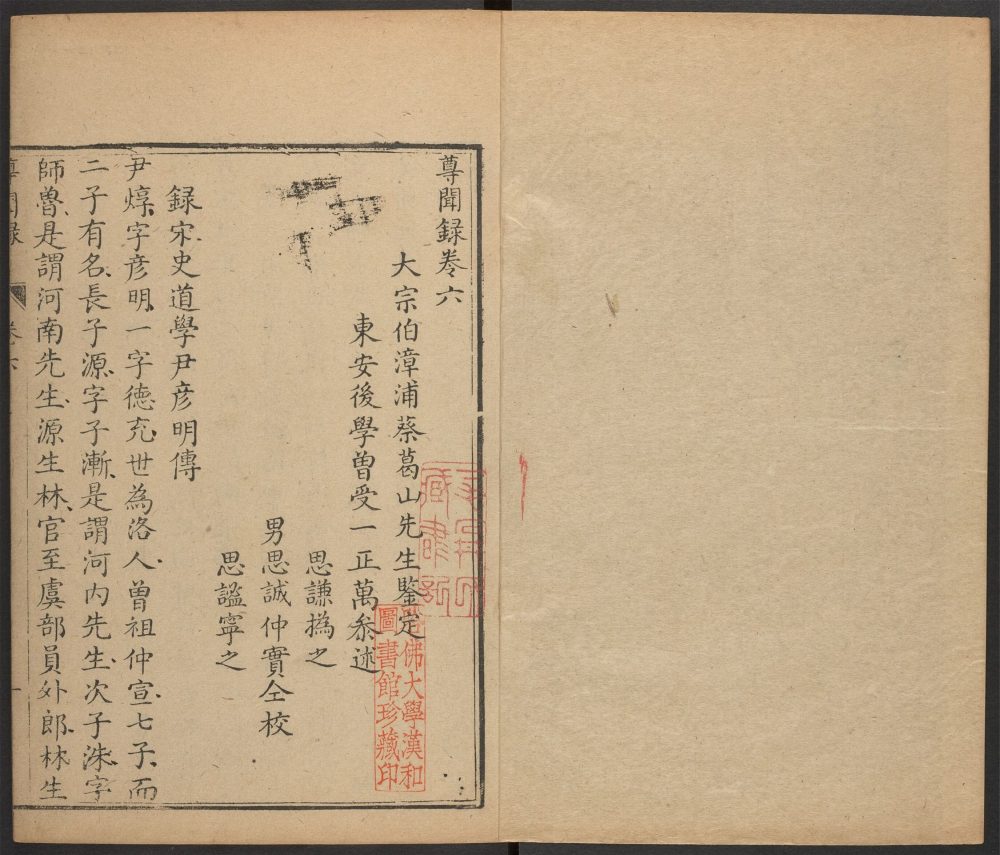 尊聞録卷六
大宗伯漳浦蔡葛山先生鑒定
東安後學曽受一正萬叅述
思謙撝之
男思誠仲實仝校
思謐寧之
録宋史道學尹彦明傳
尹焞字彦明一字徳充世為洛人曽祖仲宣七子而
二子有名長子源字子漸是謂河内先生次子洙字
師魯是謂河南先生源生林官至虞部員外郎林生
尊聞録
卷六
一
佛大學漢和
圖書館珍藏印
藏書記